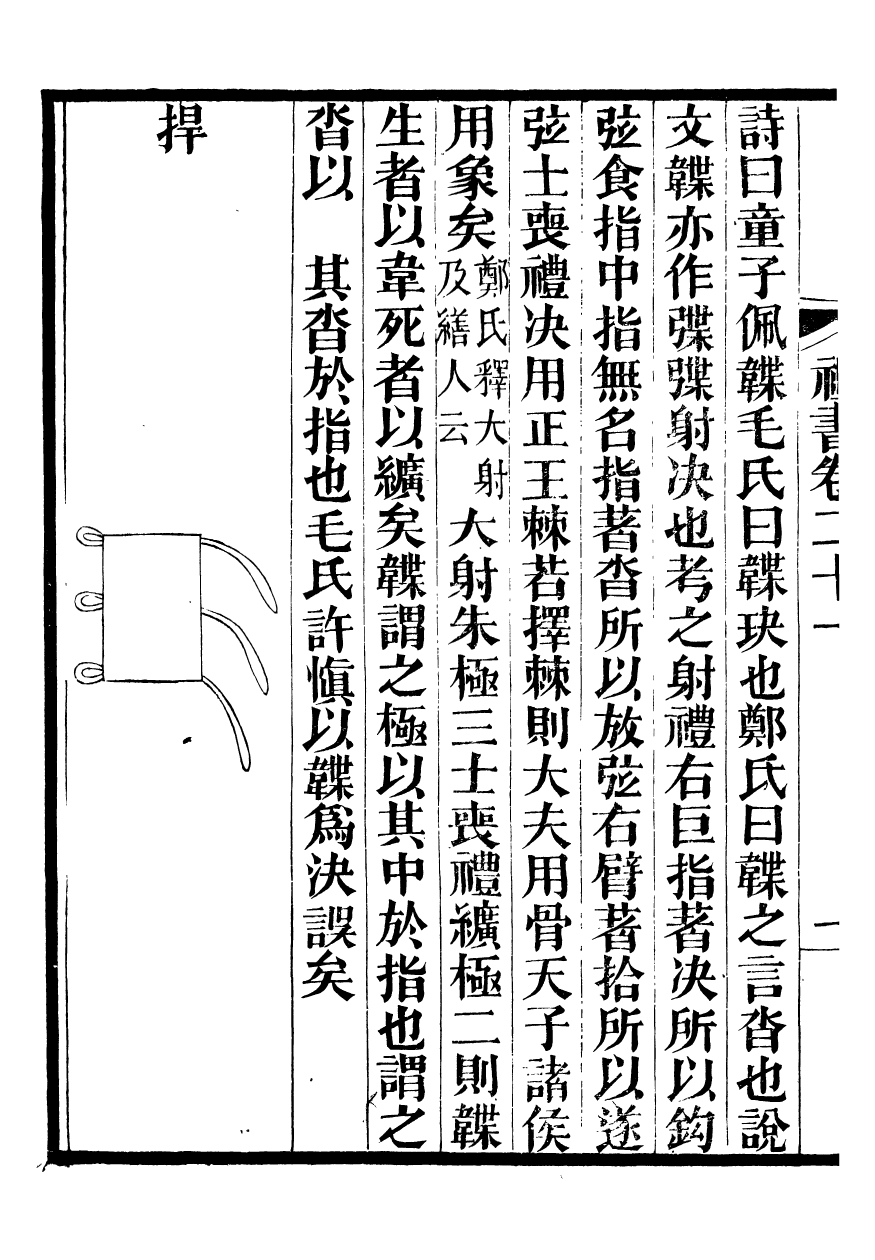 禮書卷二十一
詩曰童子佩韘毛氏曰韘玦也鄭氏曰韘之言沓也說
文韘亦作弽弽射决也考之射禮右巨指著决所以鈎
弦食指中指無名指著沓所以放弦右臂著拾所以遂
弦士喪禮决用正王棘若擇棘則大夫用骨天子諸侯
用象矣鄭氏釋大射及繕人云大射朱極三士喪禮纊極二則韘
生者以韋死者以纊矣韘謂之極以其中於指也謂之
沓以　其沓於指也毛氏許愼以韘爲決誤矣
捍